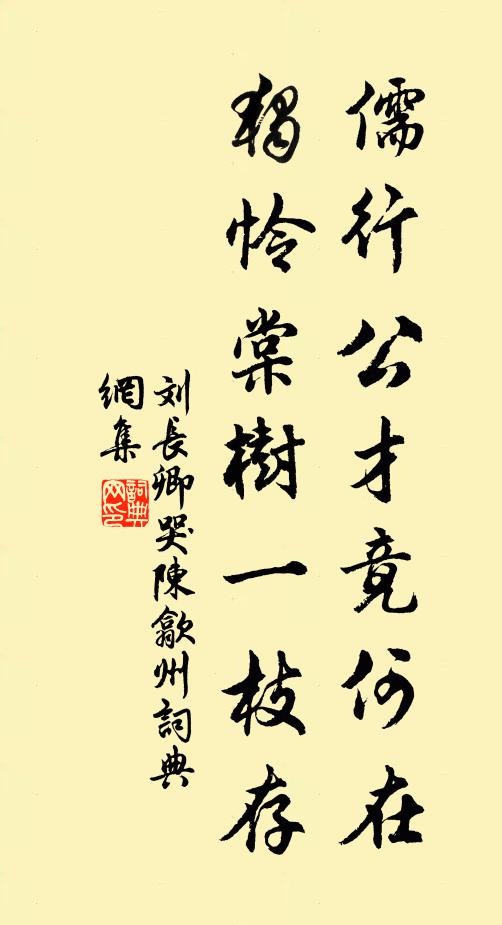 儒行公才竟何在
獨怜棠樹一枝存
刘長卿哭陳歙州詞典
網集
詞典網印